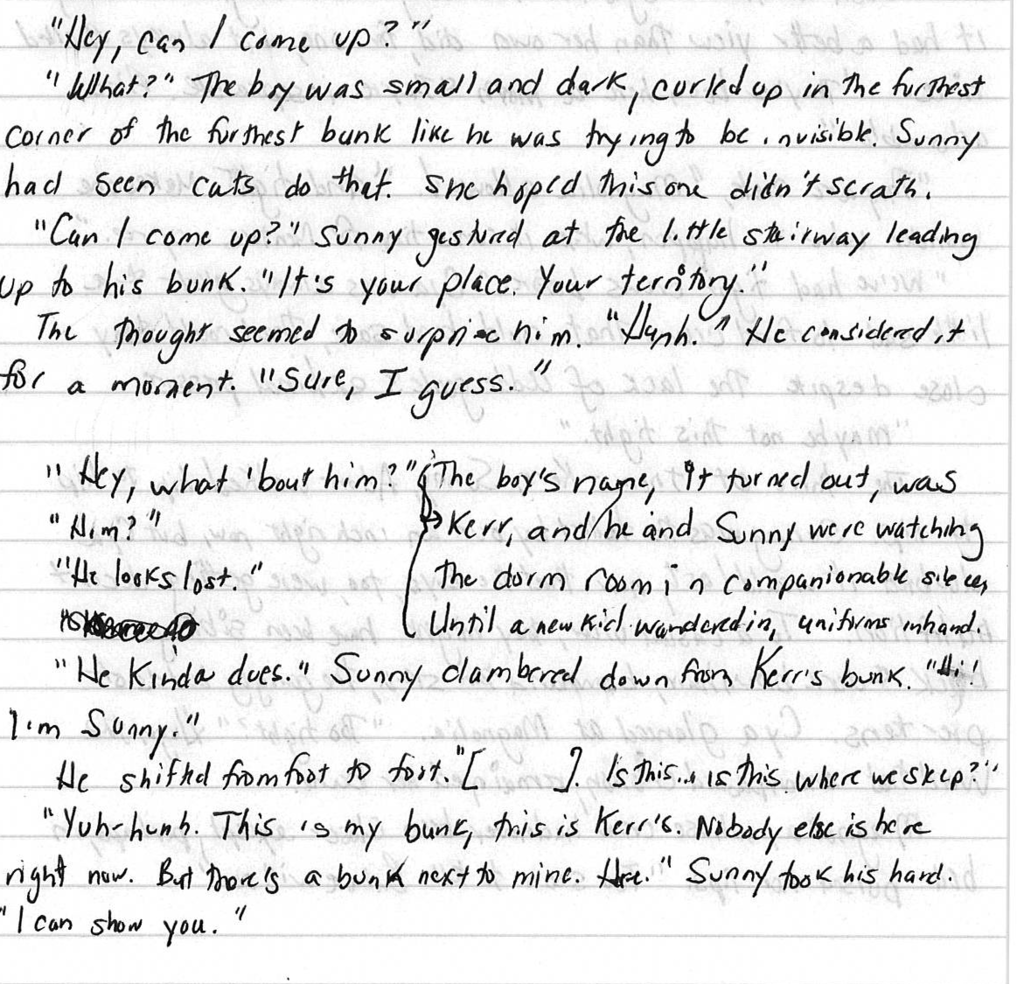 "Hey, can I come up?"
"What?" The boy was small and dark, curled up in the furthest
corner of the furthest bunk like he was trying to be invisible. Sunny
had seen cats do that. She hoped this one didn't scrath.
"Can I come up?" Sunny gestured at the little stairway leading
up to his bunk. "It's your place. Your territory."
The thought seemed to surprise him. "Hunh." He considered it
for a moment. "Sure, I guess."
"Hey, what 'bout him?"
"Him?"
"He looks lost."
The boy's name, it turned out, was
Kerr, and he and Sunny were watching
the dorm room in companionable silence,
Until a new kid wandered in, uniforms in hand.
"He Kinda does." Sunny clambered down from Kerr's bunk. "Hi!
I'm Sunny."
He shifted from foot to foot. "[ ]. Is this... is this where we sleep?"
"Yuh-hunh. This is my bunk, this is Kerr's. Nobody else is here
right now. But there's a bunk next to mine. Here." Sunny took his hand.
"I can show you."